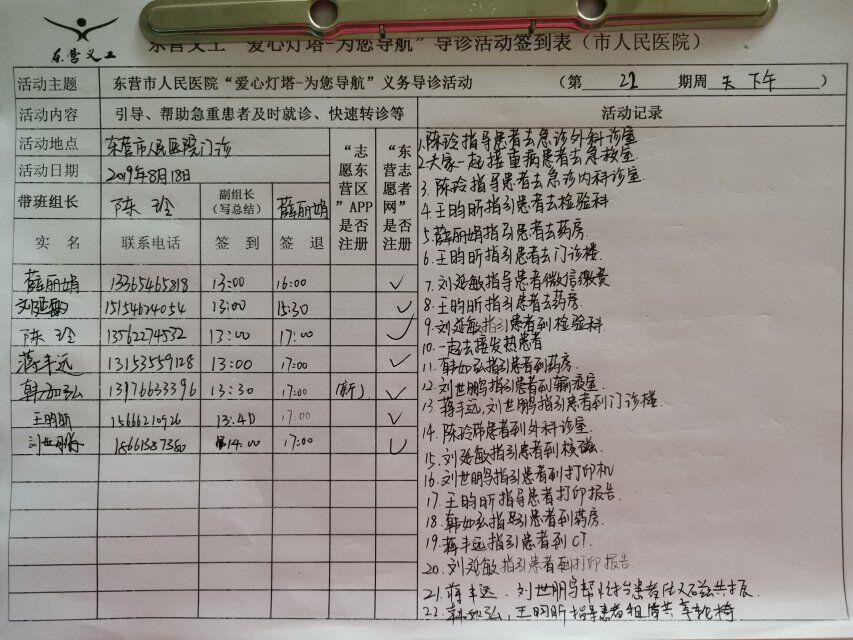 东营义工
东营义工“爱心灯塔-为您导航”导诊活动签到表（市人民医院）
活动主题 东营市人民医院“爱心灯塔-为您导航”义务导诊活动 （第 期周 天 下午 ）
活动内容 引导、帮助急重患者及时就诊、快速转诊等 活动记录
活动地点 东营市人民医院门诊
活动日期 2019年8月18日
带班组长 陈玲 副组长（写总结） 薛丽娟
实名 联系电话 签到 签退 “志愿东营区”APP是否注册 “东营志愿者网”是否注册
薛丽娟 13365465818 13:00 16:00 ✓
刘延敏 15154624054 13:00 15:30 ✓
陈玲 13562274532 13:00 17:00 ✓
蒋丰远 13153559128 13:00 17:00 ✓
韩如弘 13976633396 13:30 17:00 (新) ✓
王昀昕 15666210926 13:40 17:00 ✓
刘世鹏 14:00 17:00 ✓
1.陈玲指导患者去急诊外科诊室
2.大家一起接重病患者去急救室.
3.陈玲指导患者去急诊内科诊室.
4.王昀昕指引患者去检验科.
5.薛丽娟指引患者去药房.
6.王昀昕指引患者去门诊楼.
7.刘延敏指导患者微信缴费
8.王昀昕指引患者去药房.
9.刘延敏指引患者到检验科.
10.一起去接发热患者
11.韩如弘指引患者到药房.
12.刘世鹏指引患者到输液室.
13.蒋丰远,刘世鹏指引患者到门诊楼.
14.陈玲带患者到外科诊室.
15.刘延敏指引患者到核磁.
16.刘世鹏指引患者到打印机
17.王昀昕指导患者打印报告.
18.韩如弘指引患者到药房.
19.蒋丰远指引患者到CT.
20.刘延敏指引患者到打印报告.
21.蒋丰远、刘世鹏帮忙抬患者做核磁共振.
22.韩如弘,王昀昕指导患者租借共享轮椅